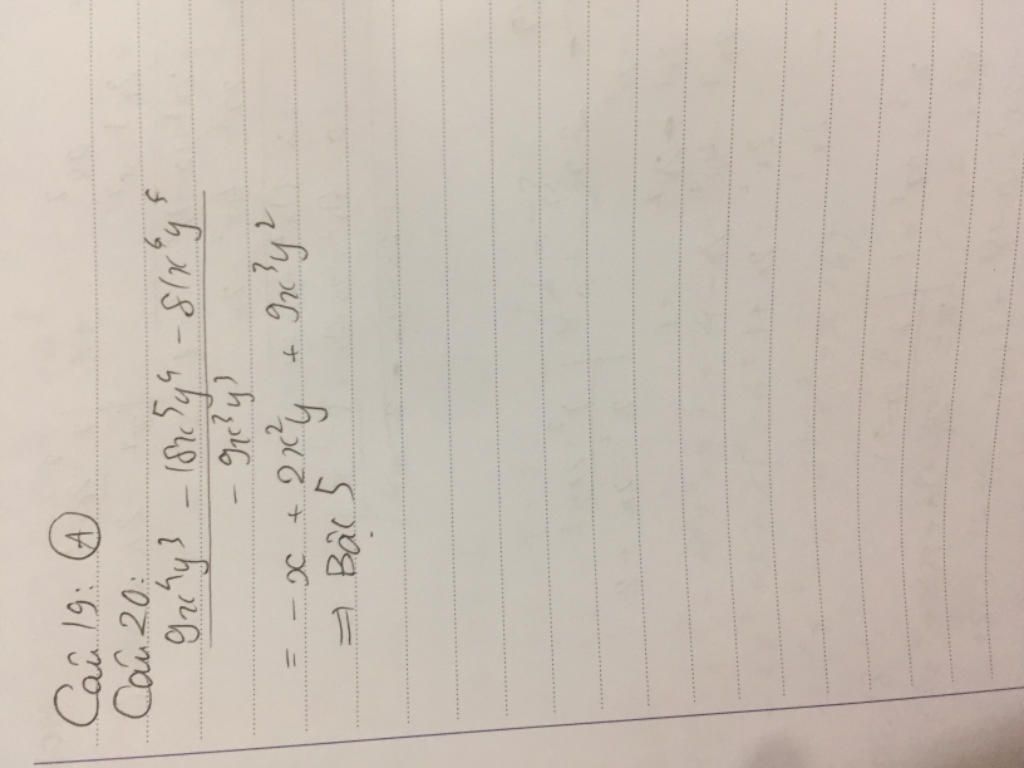 Câu 19: Ⓐ
Câu 20:
9x⁴y³ - 18x⁵y⁴ - 81x⁶y⁵
- 9x³y³
= - x + 2x²y + 9x³y²
⇒ Bậc 5